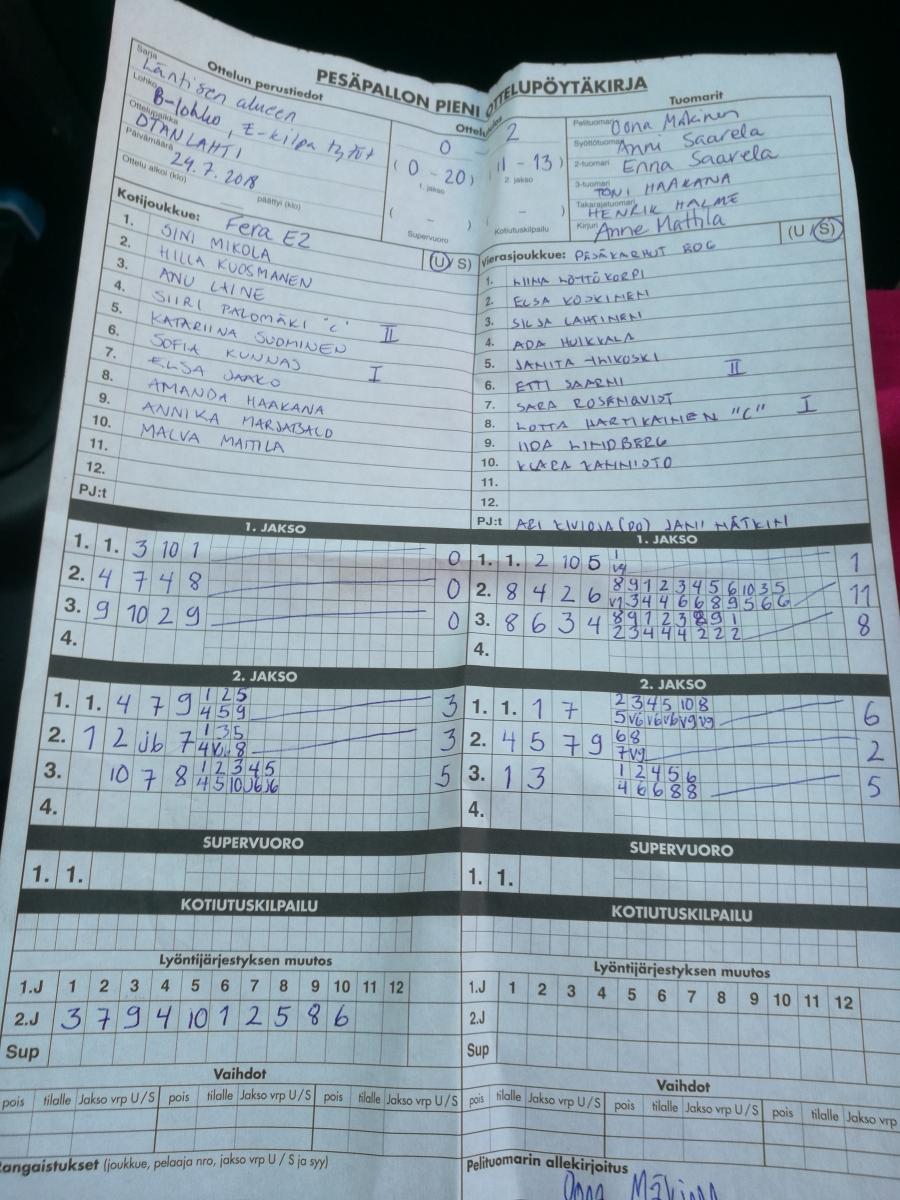 PESÄPALLON PIENI OTTELUPÖYTÄKIRJA
Sarja
Ottelun perustiedot
Läntisen alueen
Lohko
B-lohko, E-kilpa tytöt
Ottelupaikka
OTANLAHTI
Päivämäärä
24.7.2018
Ottelu alkoi (klo)
päättyi (klo)
0 2
(0 - 20) (11 - 13)
1. jakso 2. jakso
( - ) ( - )
Supervuoro Kotiutuskilpailu
Tuomarit
Pelituomari Oona Mäkinen
Syöttötuomari Anni Saarela
2-tuomari Enna Saarela
3-tuomari TONI HAAKANA
Takarajatuomari HENRIK HALME
Kirjuri Anne Mattila
Kotijoukkue: Fera E2 (U/S)
1. SINI MIKOLA
2. HILLA KUOSMANEN
3. ANU LAINE
4. SIIRI PALOMÄKI "C" II
5. KATARIINA SUOMINEN
6. SOFIA KUNNAS I
7. ELSA JAAKO
8. AMANDA HAAKANA
9. ANNIKA
10. MALVA MATTILA
11.
12.
PJ:t
Vierasjoukkue: PESÄKARHUT (U/S)
1.
2. ELSA KOSKINEN
3. SILJA LAHTINEN
4. ADA HUIKKALA
5. JANITA
6. ETTI SAARNI II
7. SARA ROSENQVIST
8. LOTTA HARTIKAINEN "C" I
9. IIDA LINDBERG
10. KLARA KANNISTO
11.
12.
PJ:t ARI (PO) JANI
1. JAKSO
1. 1. 3 10 1 0
2. 4 7 4 8 0
3. 9 10 2 9 0
4.
1. JAKSO
1. 1. 2 10 5 1 1
vg
2. 8 4 2 6 8 9 1 2 3 4 5 6 10 3 5 11
v1 3 4 4 6 6 8 9 5 6 6
3. 8 6 3 4 8 9 1 2 3 8 9 1 8
2 3 4 4 4 2 2 2
4.
2. JAKSO
1. 1. 4 7 9 1 2 5 3
4 5 9
2. 1 2 Jb 7 1 3 5 3
8
3. 10 7 8 1 2 3 4 5 5
4 5 10 J6 J6
4.
2. JAKSO
1. 1. 1 7 2 3 4 5 10 8 6
5 v6 v6 v6 v9 v9
2. 4 5 7 9 6 8 2
7 v9
3. 1 3 1 2 4 5 6 5
4 6 6 8 8
4.
SUPERVUORO
1. 1.
SUPERVUORO
1. 1.
KOTIUTUSKILPAILU
KOTIUTUSKILPAILU
Lyöntijärjestyksen muutos
1.J 1 2 3 4 5 6 7 8 9 10 11 12
2.J 3 7 9 4 10 1 2 5 8 6
Sup
Lyöntijärjestyksen muutos
1.J 1 2 3 4 5 6 7 8 9 10 11 12
2.J
Sup
Vaihdot
pois tilalle Jakso vrp U/S pois tilalle Jakso vrp U/S pois tilalle Jakso vrp U/S
Vaihdot
pois tilalle Jakso vrp U/S pois tilalle Jakso vrp U/S pois tilalle Jakso vrp
angaistukset (joukkue, pelaaja nro, jakso vrp U / S ja syy)
Pelituomarin allekirjoitus
Oona Mäkinen